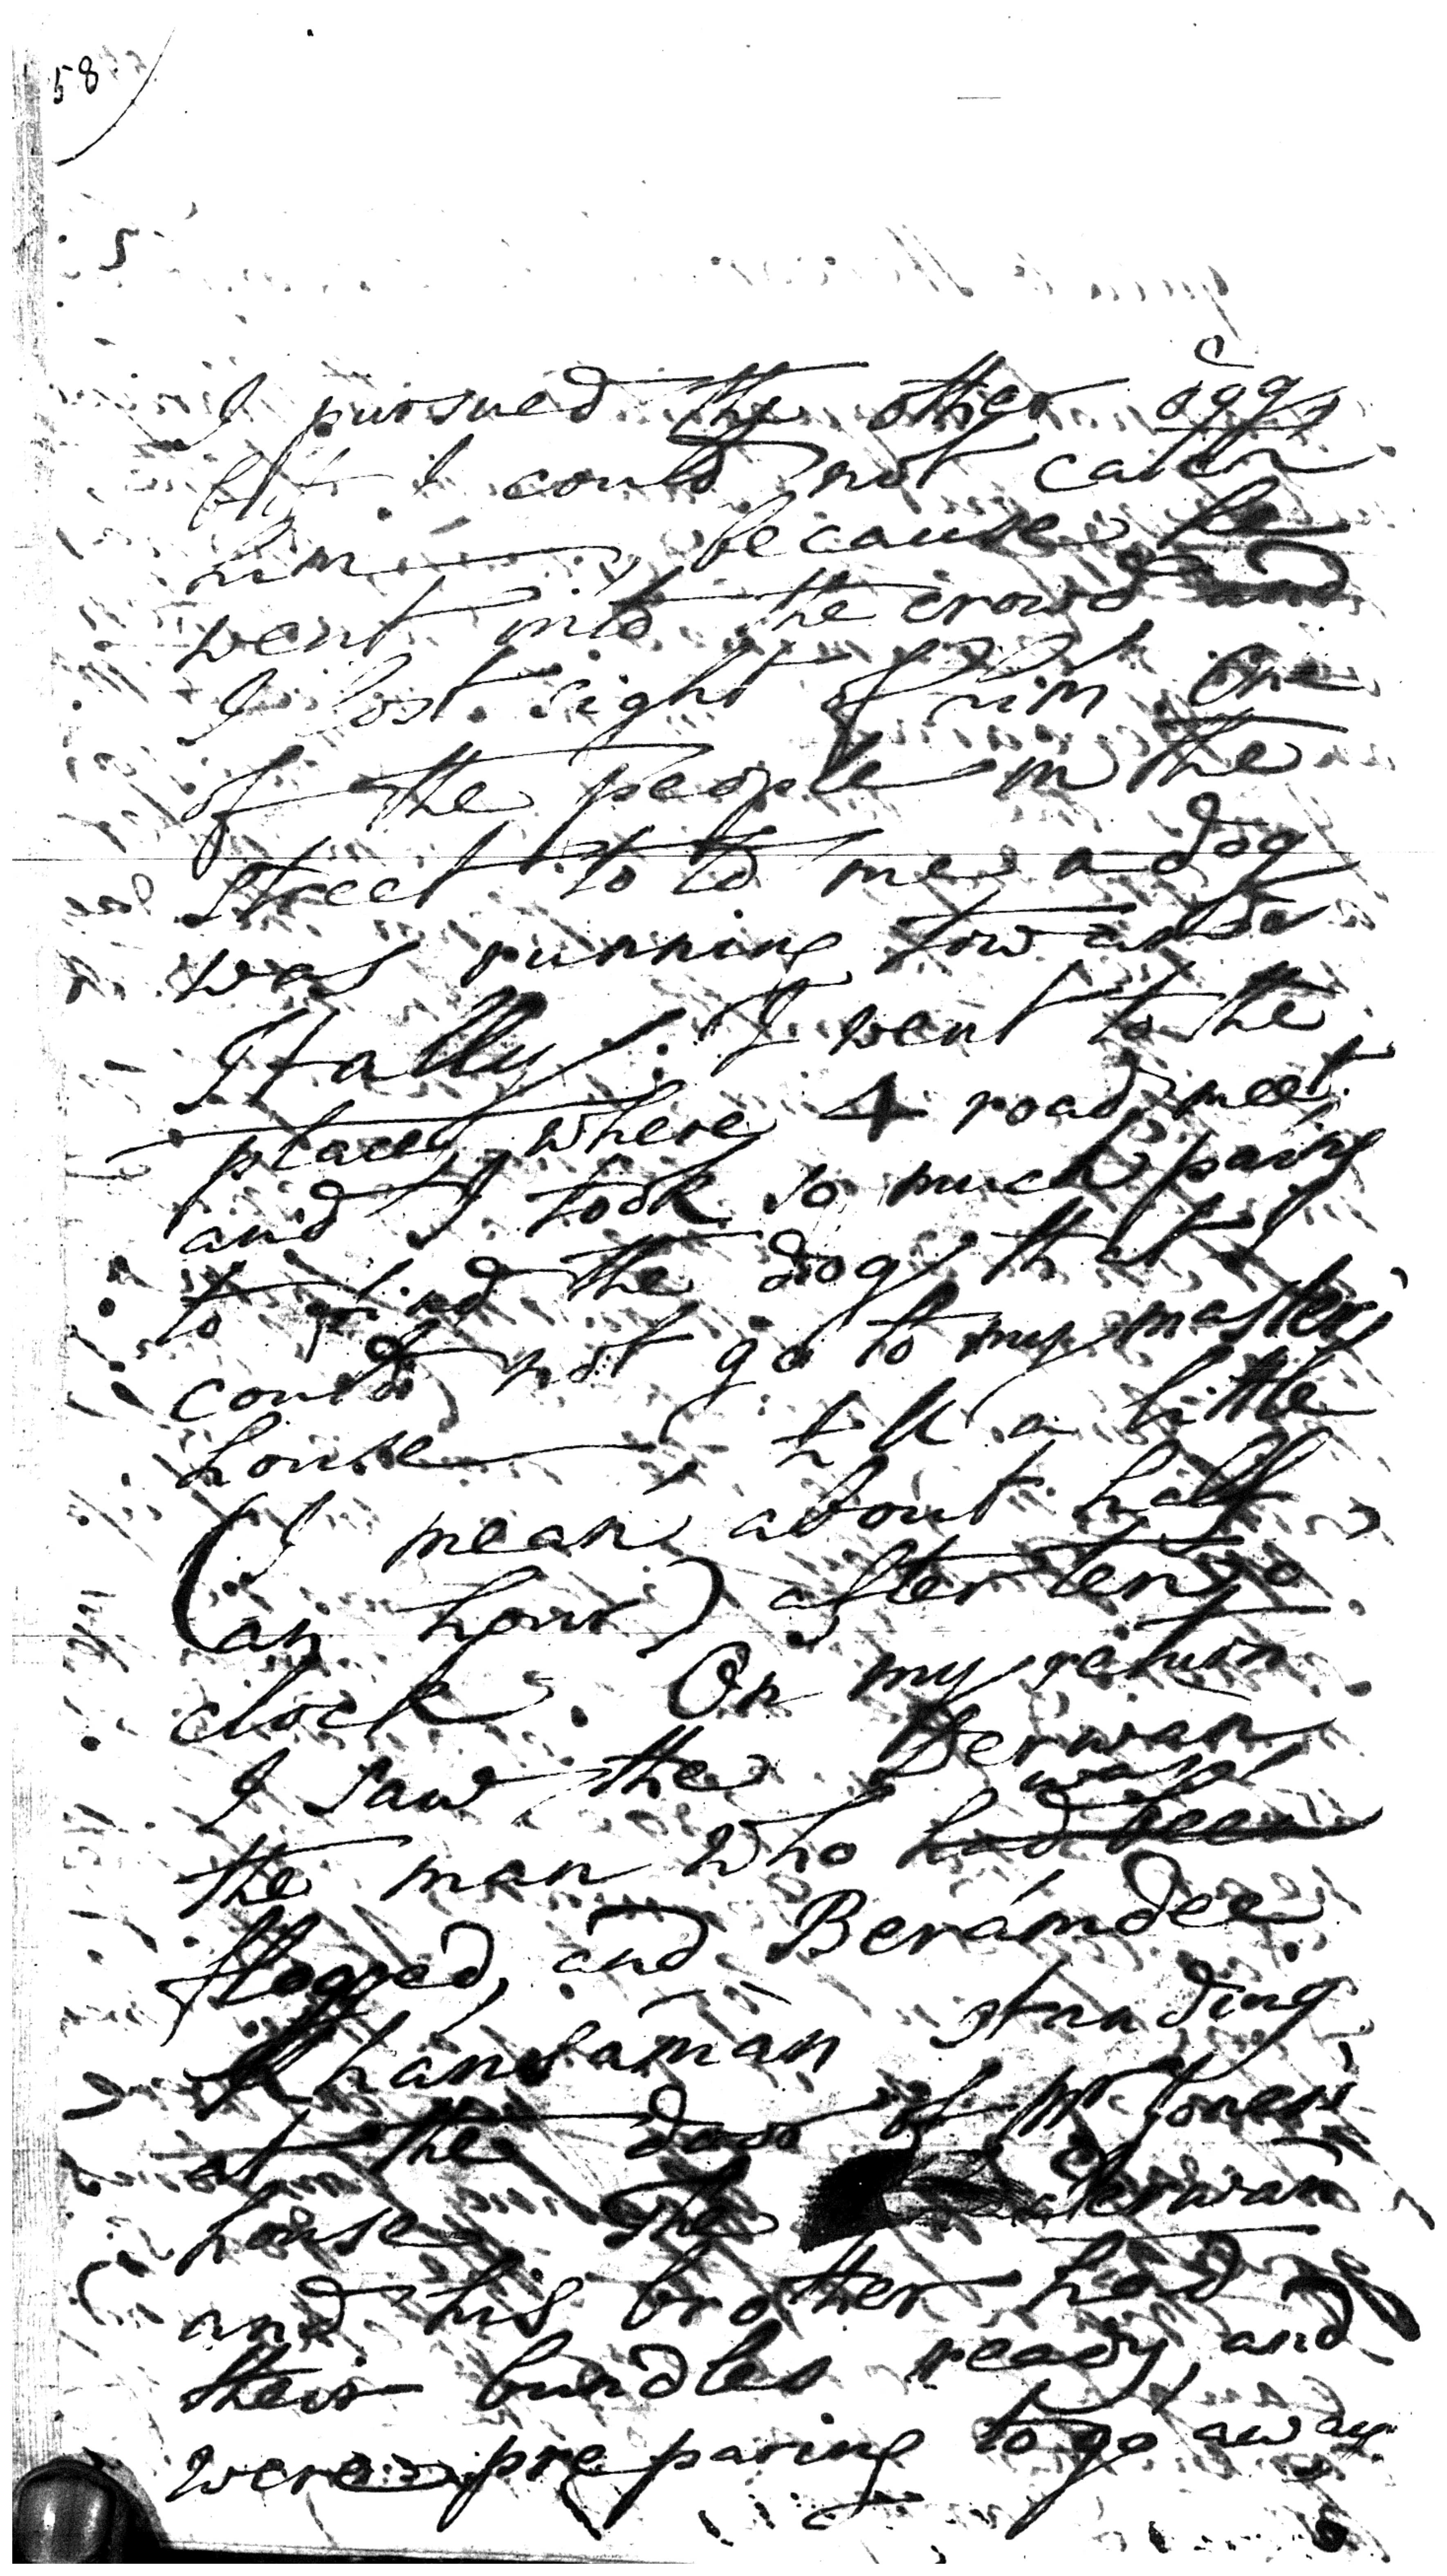 58
5
I pursued the other dog,
but I could not catch
him, because he
went into the crowd and
I lost sight of him. One
of the people in the
street told me a dog
was running towards
Hally. I went to the
place, where 4 roads meet
and I took so much pains
to find the dog, that I
could not go to my master's
house, till a little
(I mean about half
an hour) after ten o
clock. On my return
I saw the Derwan
was
the man who had been
flogged, and Berámdee
Khansaman standing
at the door of Mr Jones's
house. The Derwan
and his brother had
their bundles ready, and
were preparing to go away